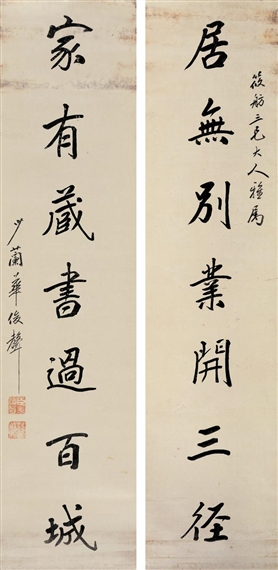 筱舫三兄大人雅属
居無別業開三径
家有藏書過百城
少蘭華俊聲